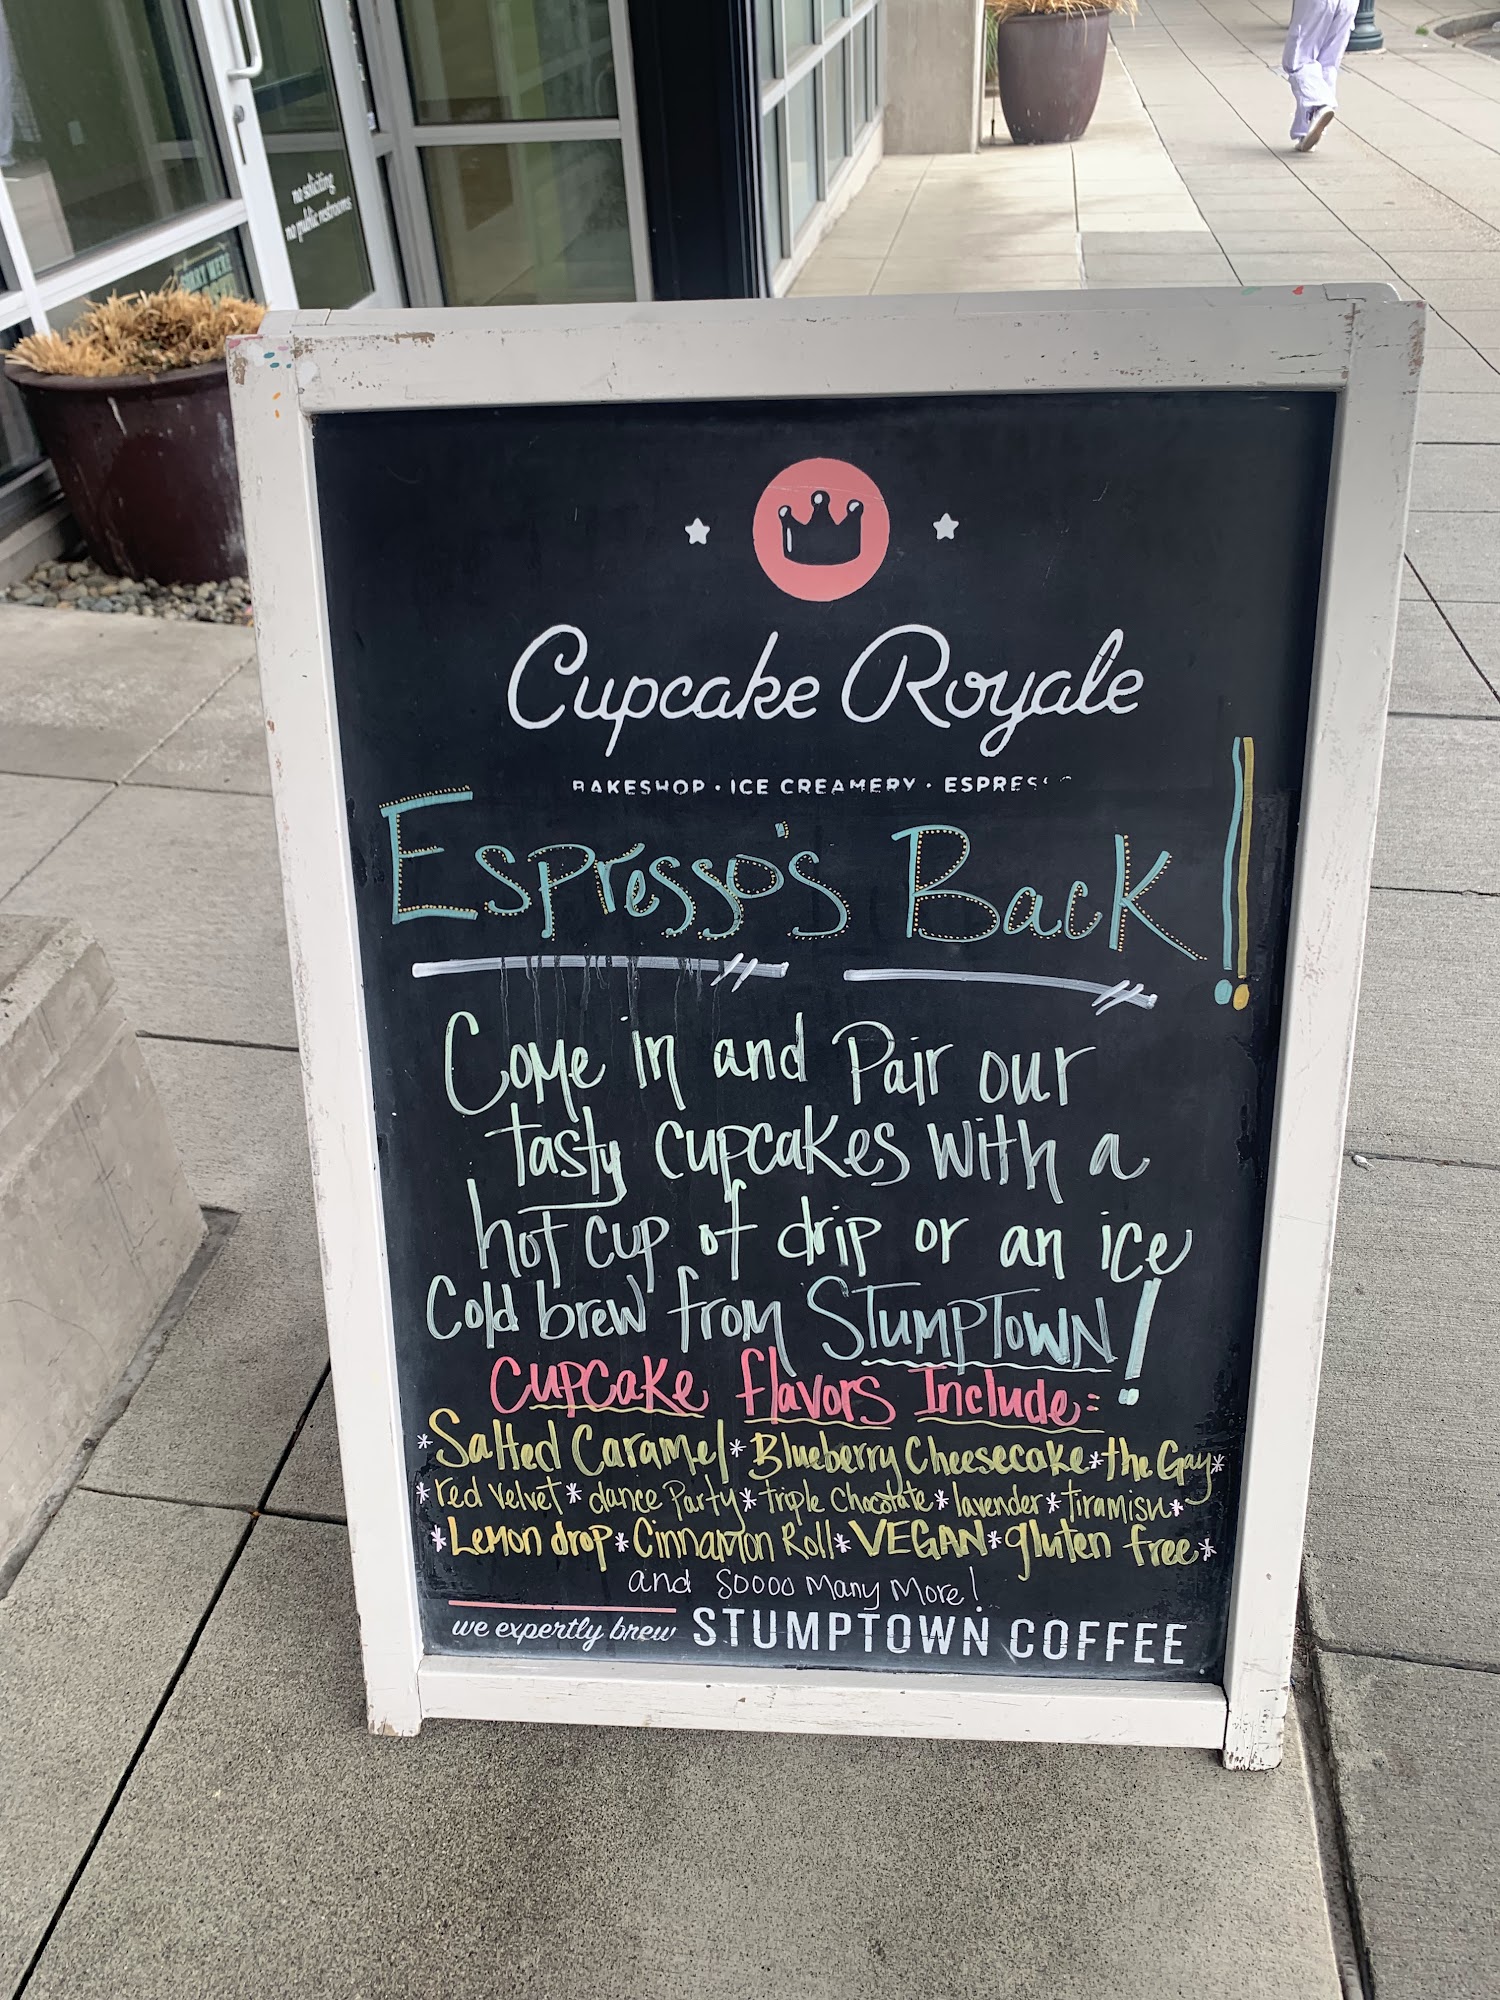 no soliciting
no public restrooms
SORRY WE'RE
Cupcake Royale
BAKESHOP · ICE CREAMERY · ESPRESSO
Espresso's Back!!
Come in and Pair our
tasty cupcakes with a
hot cup of drip or an ice
Cold brew from STUMPTOWN!
CUPCaKe flavors Include:
*Salted Caramel*Blueberry Cheesecake*the Gay*
*red velvet*dance Party*triple Chocolate*lavender*tiramisu*
*Lemon drop*Cinnamon Roll*VEGAN*gluten free*
and Soooo Many More!
we expertly brew STUMPTOWN COFFEE